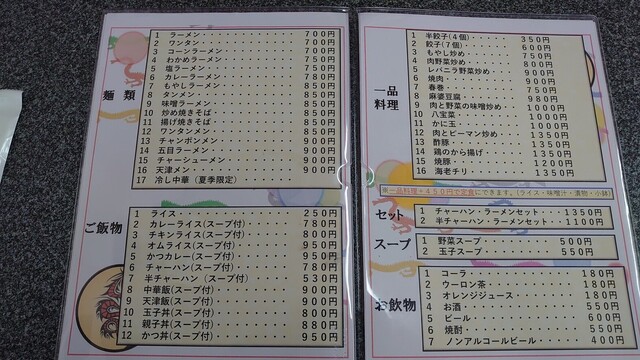 麺類
1 ラーメン 700円
2 ワンタン 700円
3 コーンラーメン 750円
4 わかめラーメン 750円
5 塩ラーメン 750円
6 カレーラーメン 780円
7 もやしラーメン 850円
8 タンメン 850円
9 味噌ラーメン 850円
10 炒め焼きそば 850円
11 揚げ焼きそば 850円
12 ワンタンメン 850円
13 チャンポンメン 900円
14 五目ラーメン 900円
15 チャーシューメン 900円
16 天津メン 900円
17 冷し中華(夏季限定)
ご飯物
1 ライス 250円
2 カレーライス(スープ付) 780円
3 チキンライス(スープ付) 800円
4 オムライス(スープ付) 950円
5 かつカレー(スープ付) 950円
6 チャーハン(スープ付) 780円
7 半チャーハン(スープ付) 530円
8 中華飯(スープ付) 900円
9 天津飯(スープ付) 900円
10 玉子丼(スープ付) 800円
11 親子丼(スープ付) 880円
12 かつ丼(スープ付) 950円
一品料理
1 半餃子(4個) 350円
2 餃子(7個) 600円
3 もやし炒め 750円
4 肉野菜炒め 800円
5 レバニラ野菜炒め 900円
6 焼肉 900円
7 春巻 750円
8 麻婆豆腐 980円
9 肉と野菜の味噌炒め 1000円
10 八宝菜 1000円
11 かに玉 1000円
12 肉とピーマン炒め 1350円
13 酢豚 1350円
14 鶏のから揚げ 1350円
15 焼豚 1200円
16 海老チリ 1350円
※一品料理+450円で定食にできます。(ライス・味噌汁・漬物・小鉢)
セット
1 チャーハン・ラーメンセット 1350円
2 半チャーハン・ラーメンセット 1100円
スープ
1 野菜スープ 500円
2 玉子スープ 550円
お飲物
1 コーラ 180円
2 ウーロン茶 180円
3 オレンジジュース 180円
4 お酒 550円
5 ビール 600円
6 焼酎 550円
7 ノンアルコールビール 400円